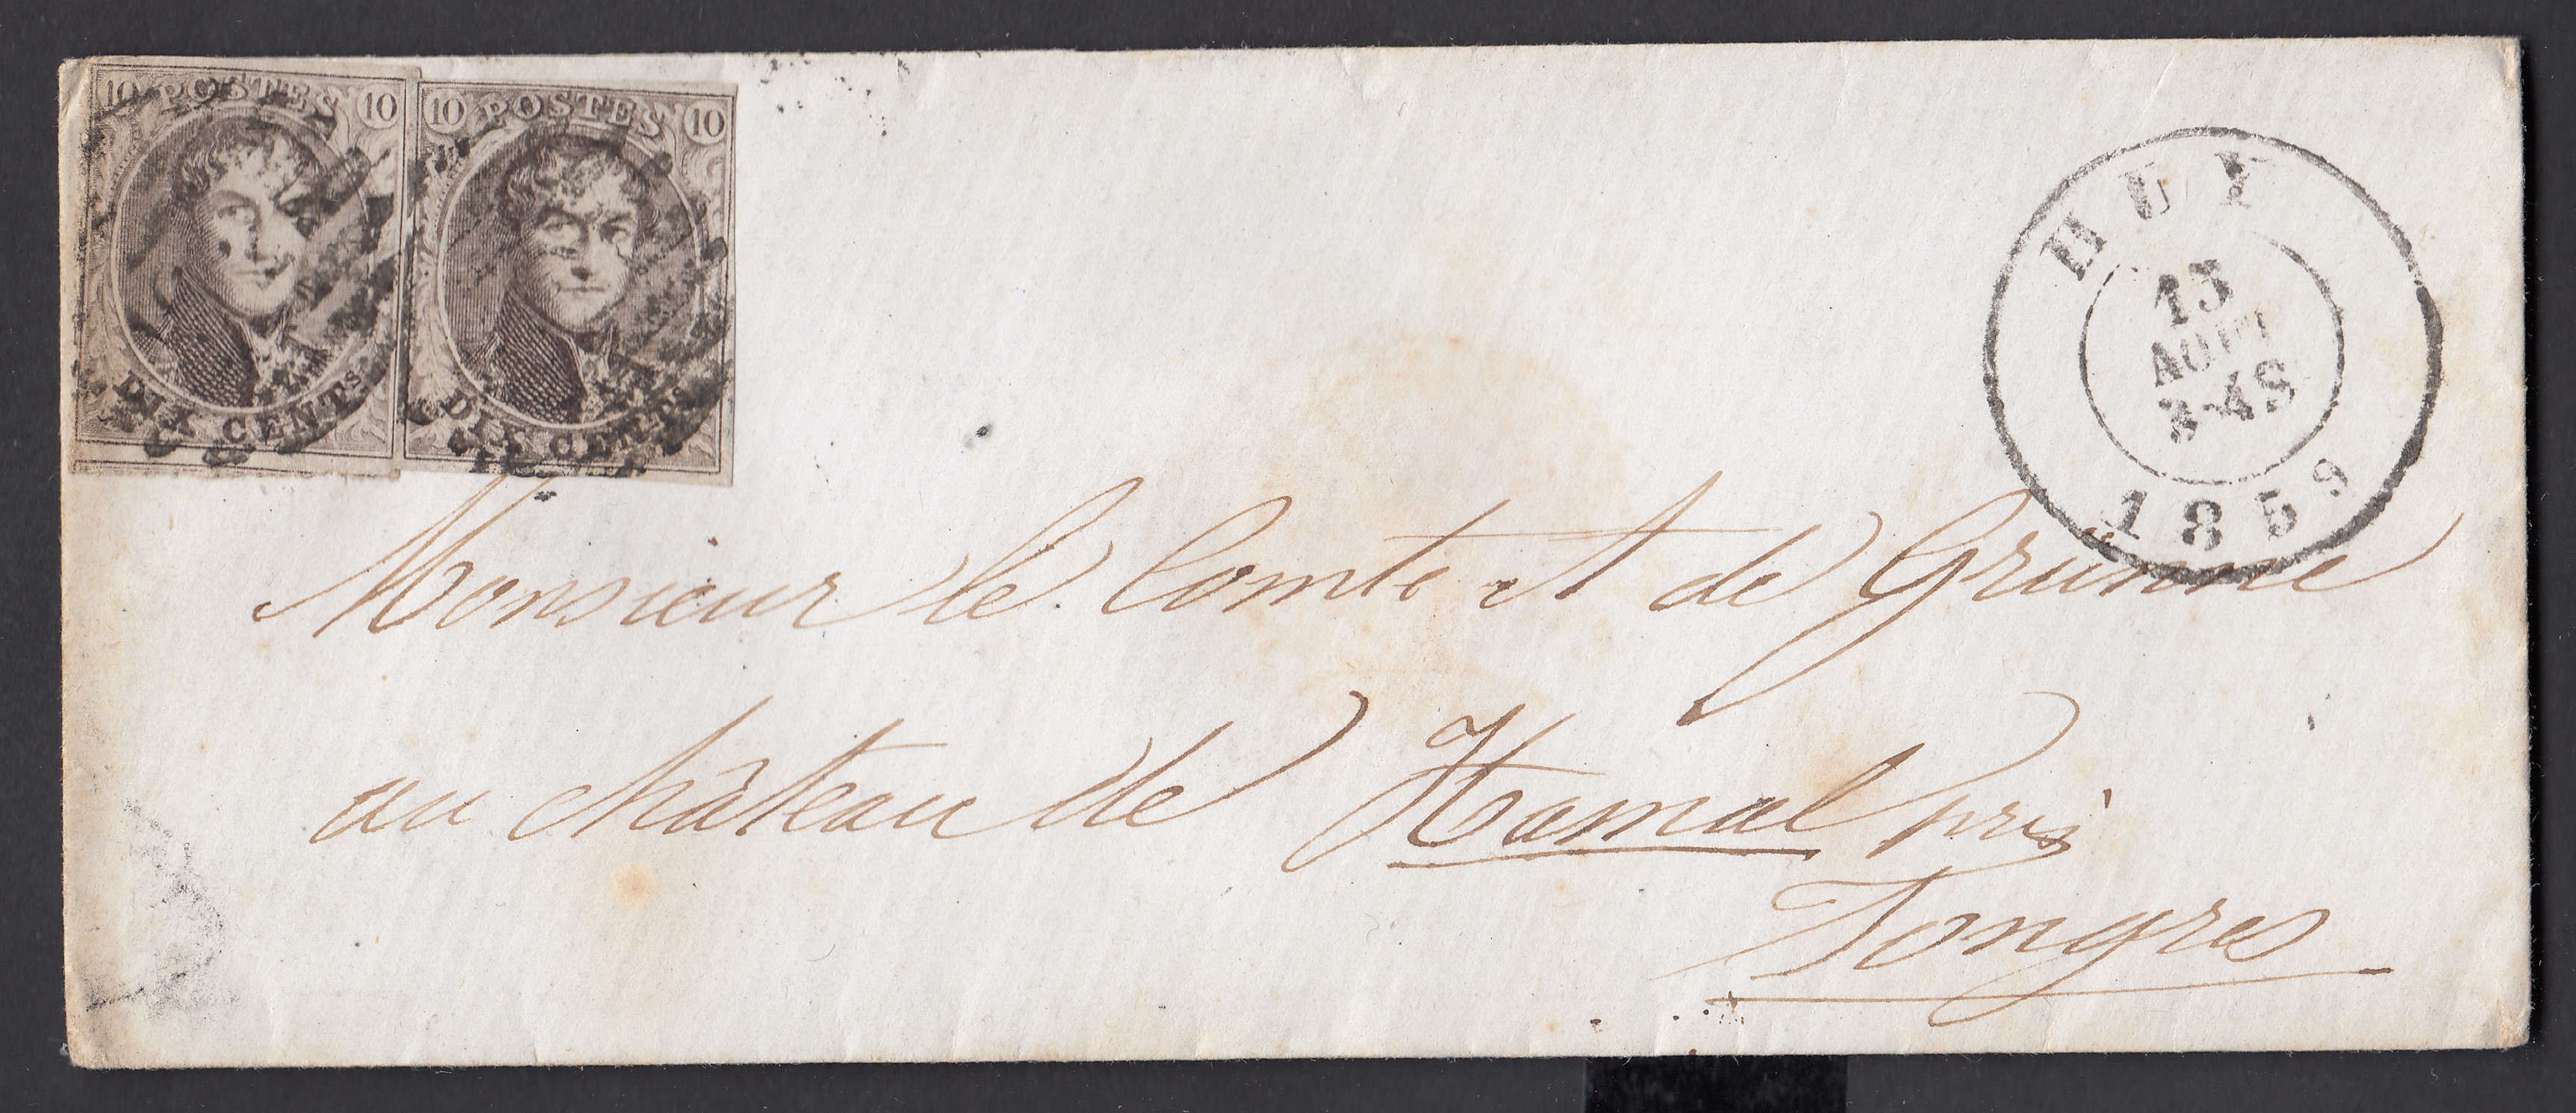 10 POSTES 10
DIX CENTS
10 POSTES 10
DIX CENTS
HUY
13
AOUT
3-4S
1859
Monsieur le Comte et de Grünne
au château de Hamal près
Tongres